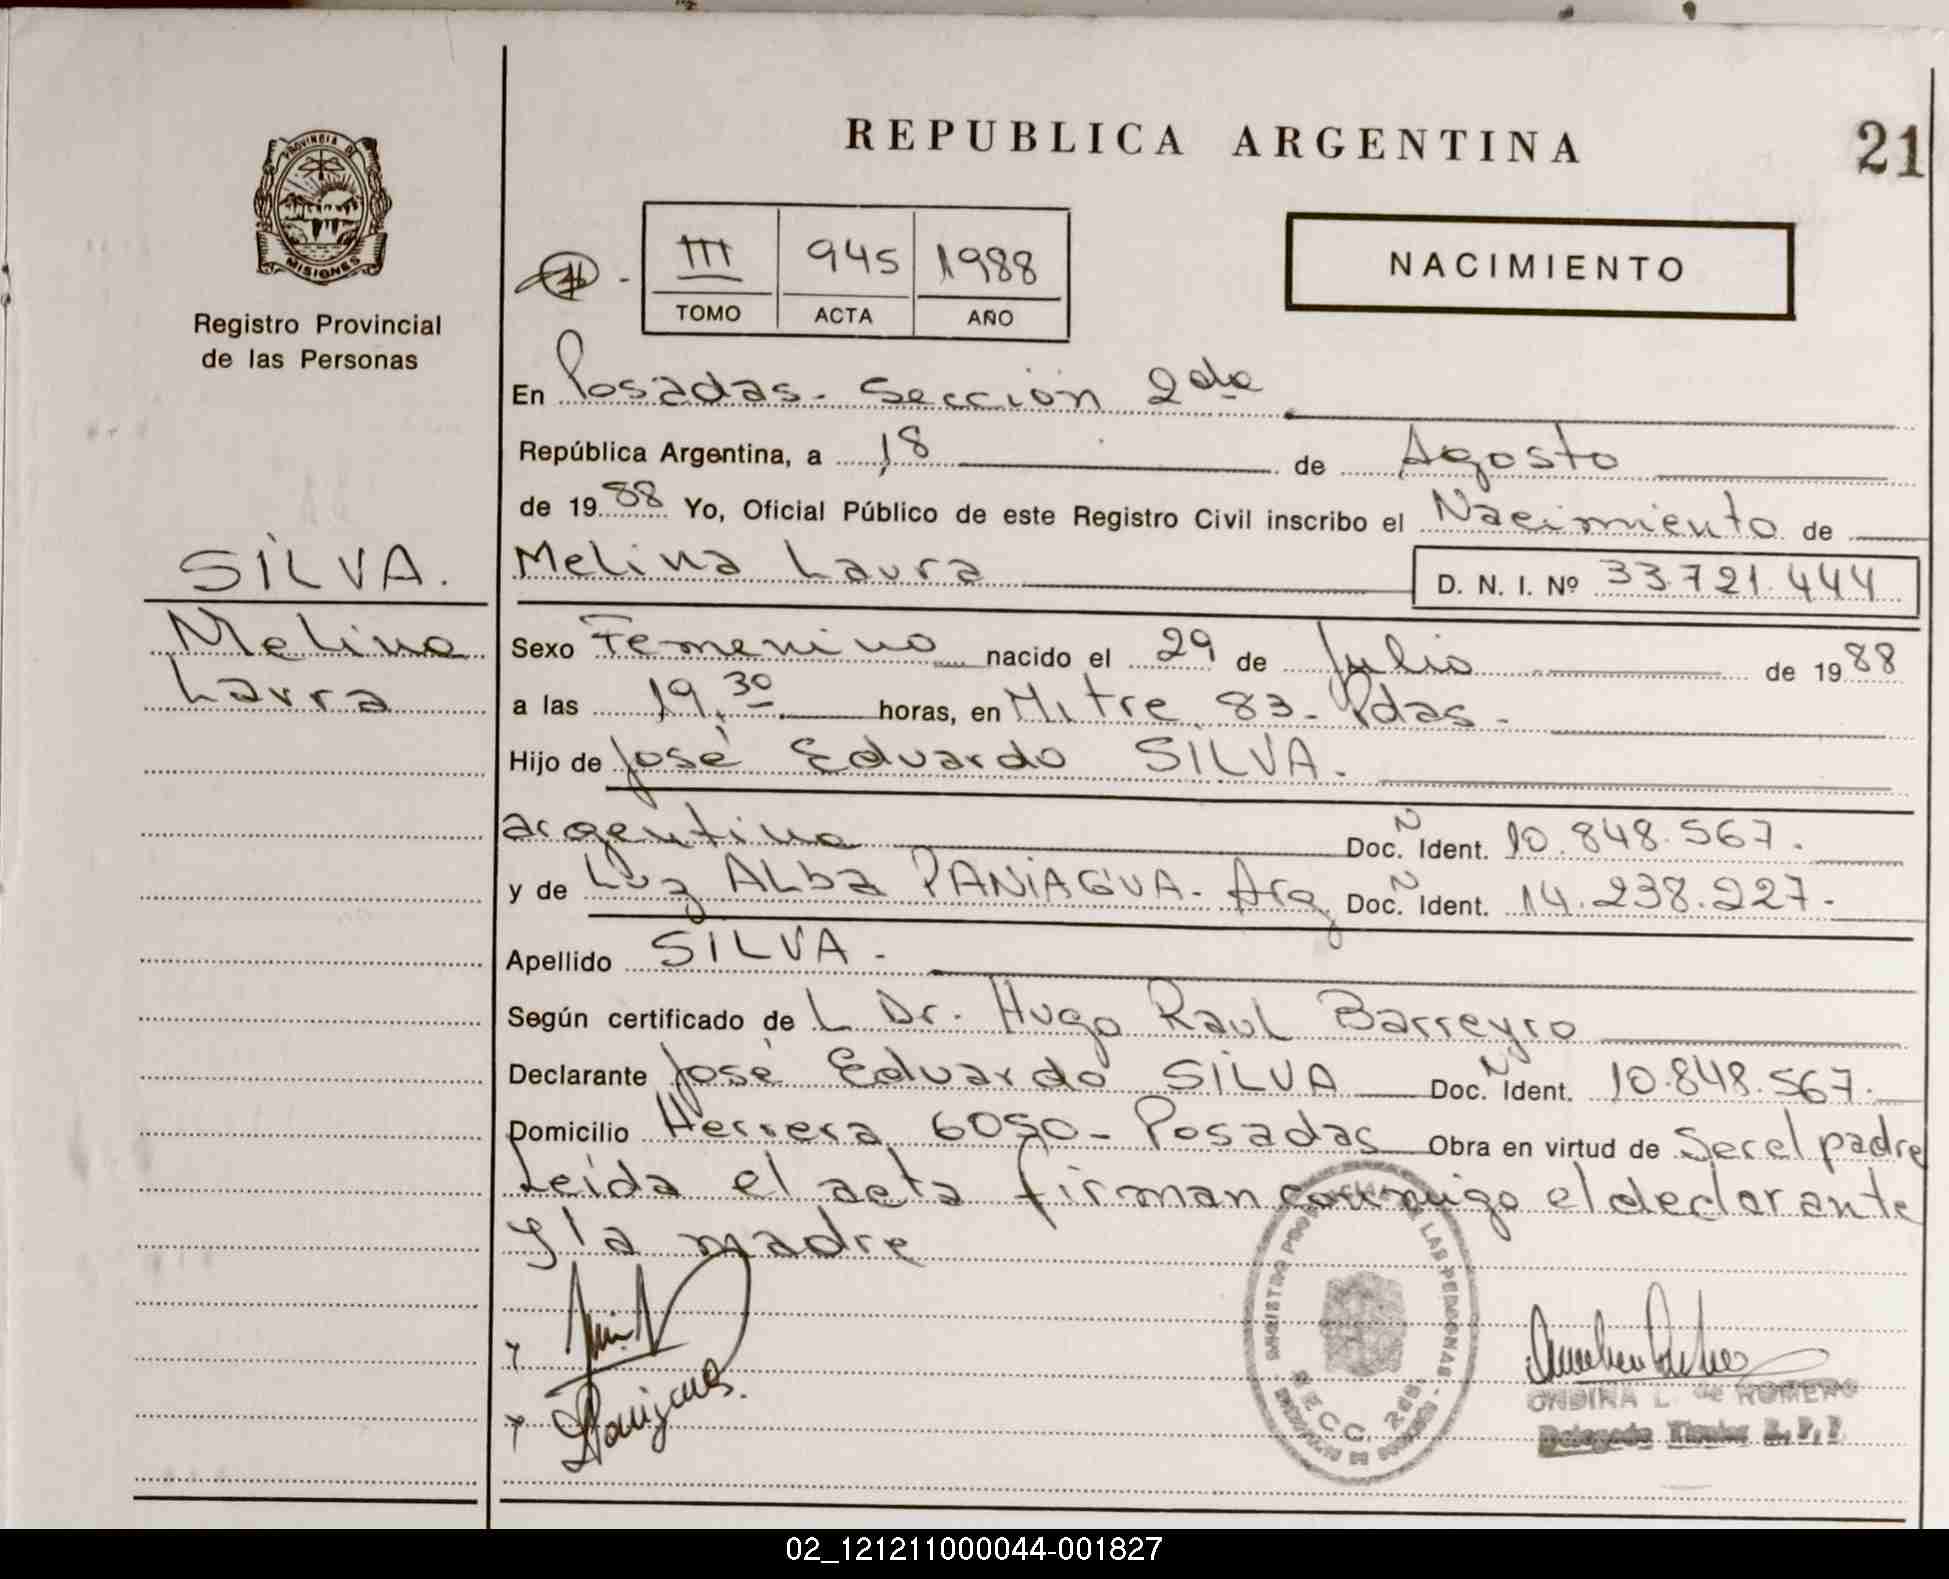 REPUBLICA ARGENTINA
21
PROVINCIA DE
MISIONES
Registro Provincial
de las Personas
III 945 1988
TOMO ACTA AÑO
NACIMIENTO
En Posadas - Sección 2da
República Argentina, a 18 de Agosto
de 1988 Yo, Oficial Público de este Registro Civil inscribo el Nacimiento de
SILVA.
Melina Laura
Melina Laura D. N. I. Nº 33.721.444
Sexo Femenino nacido el 29 de Julio de 1988
a las 19,30 horas, en Mitre 83 - Pdas -
Hijo de José Eduardo SILVA.
argentino Doc. N Ident. 10.848.567.
y de Luz ALba PANIAGUA - Arg. Doc. N Ident. 14.238.227.-
Apellido SILVA -
Según certificado de L Dr. Hugo Raul Barreyro
Declarante José Eduardo SILVA Doc. N Ident. 10.848.567.
Domicilio Herrera 6050 - Posadas Obra en virtud de Ser el padre
Leída el acta firman conmigo el declarante
y la madre
LAS PERSONAS
SECC. 2da.
ONDINA L. de ROMERO
Delegada Titular R.P.P.
02_121211000044-001827